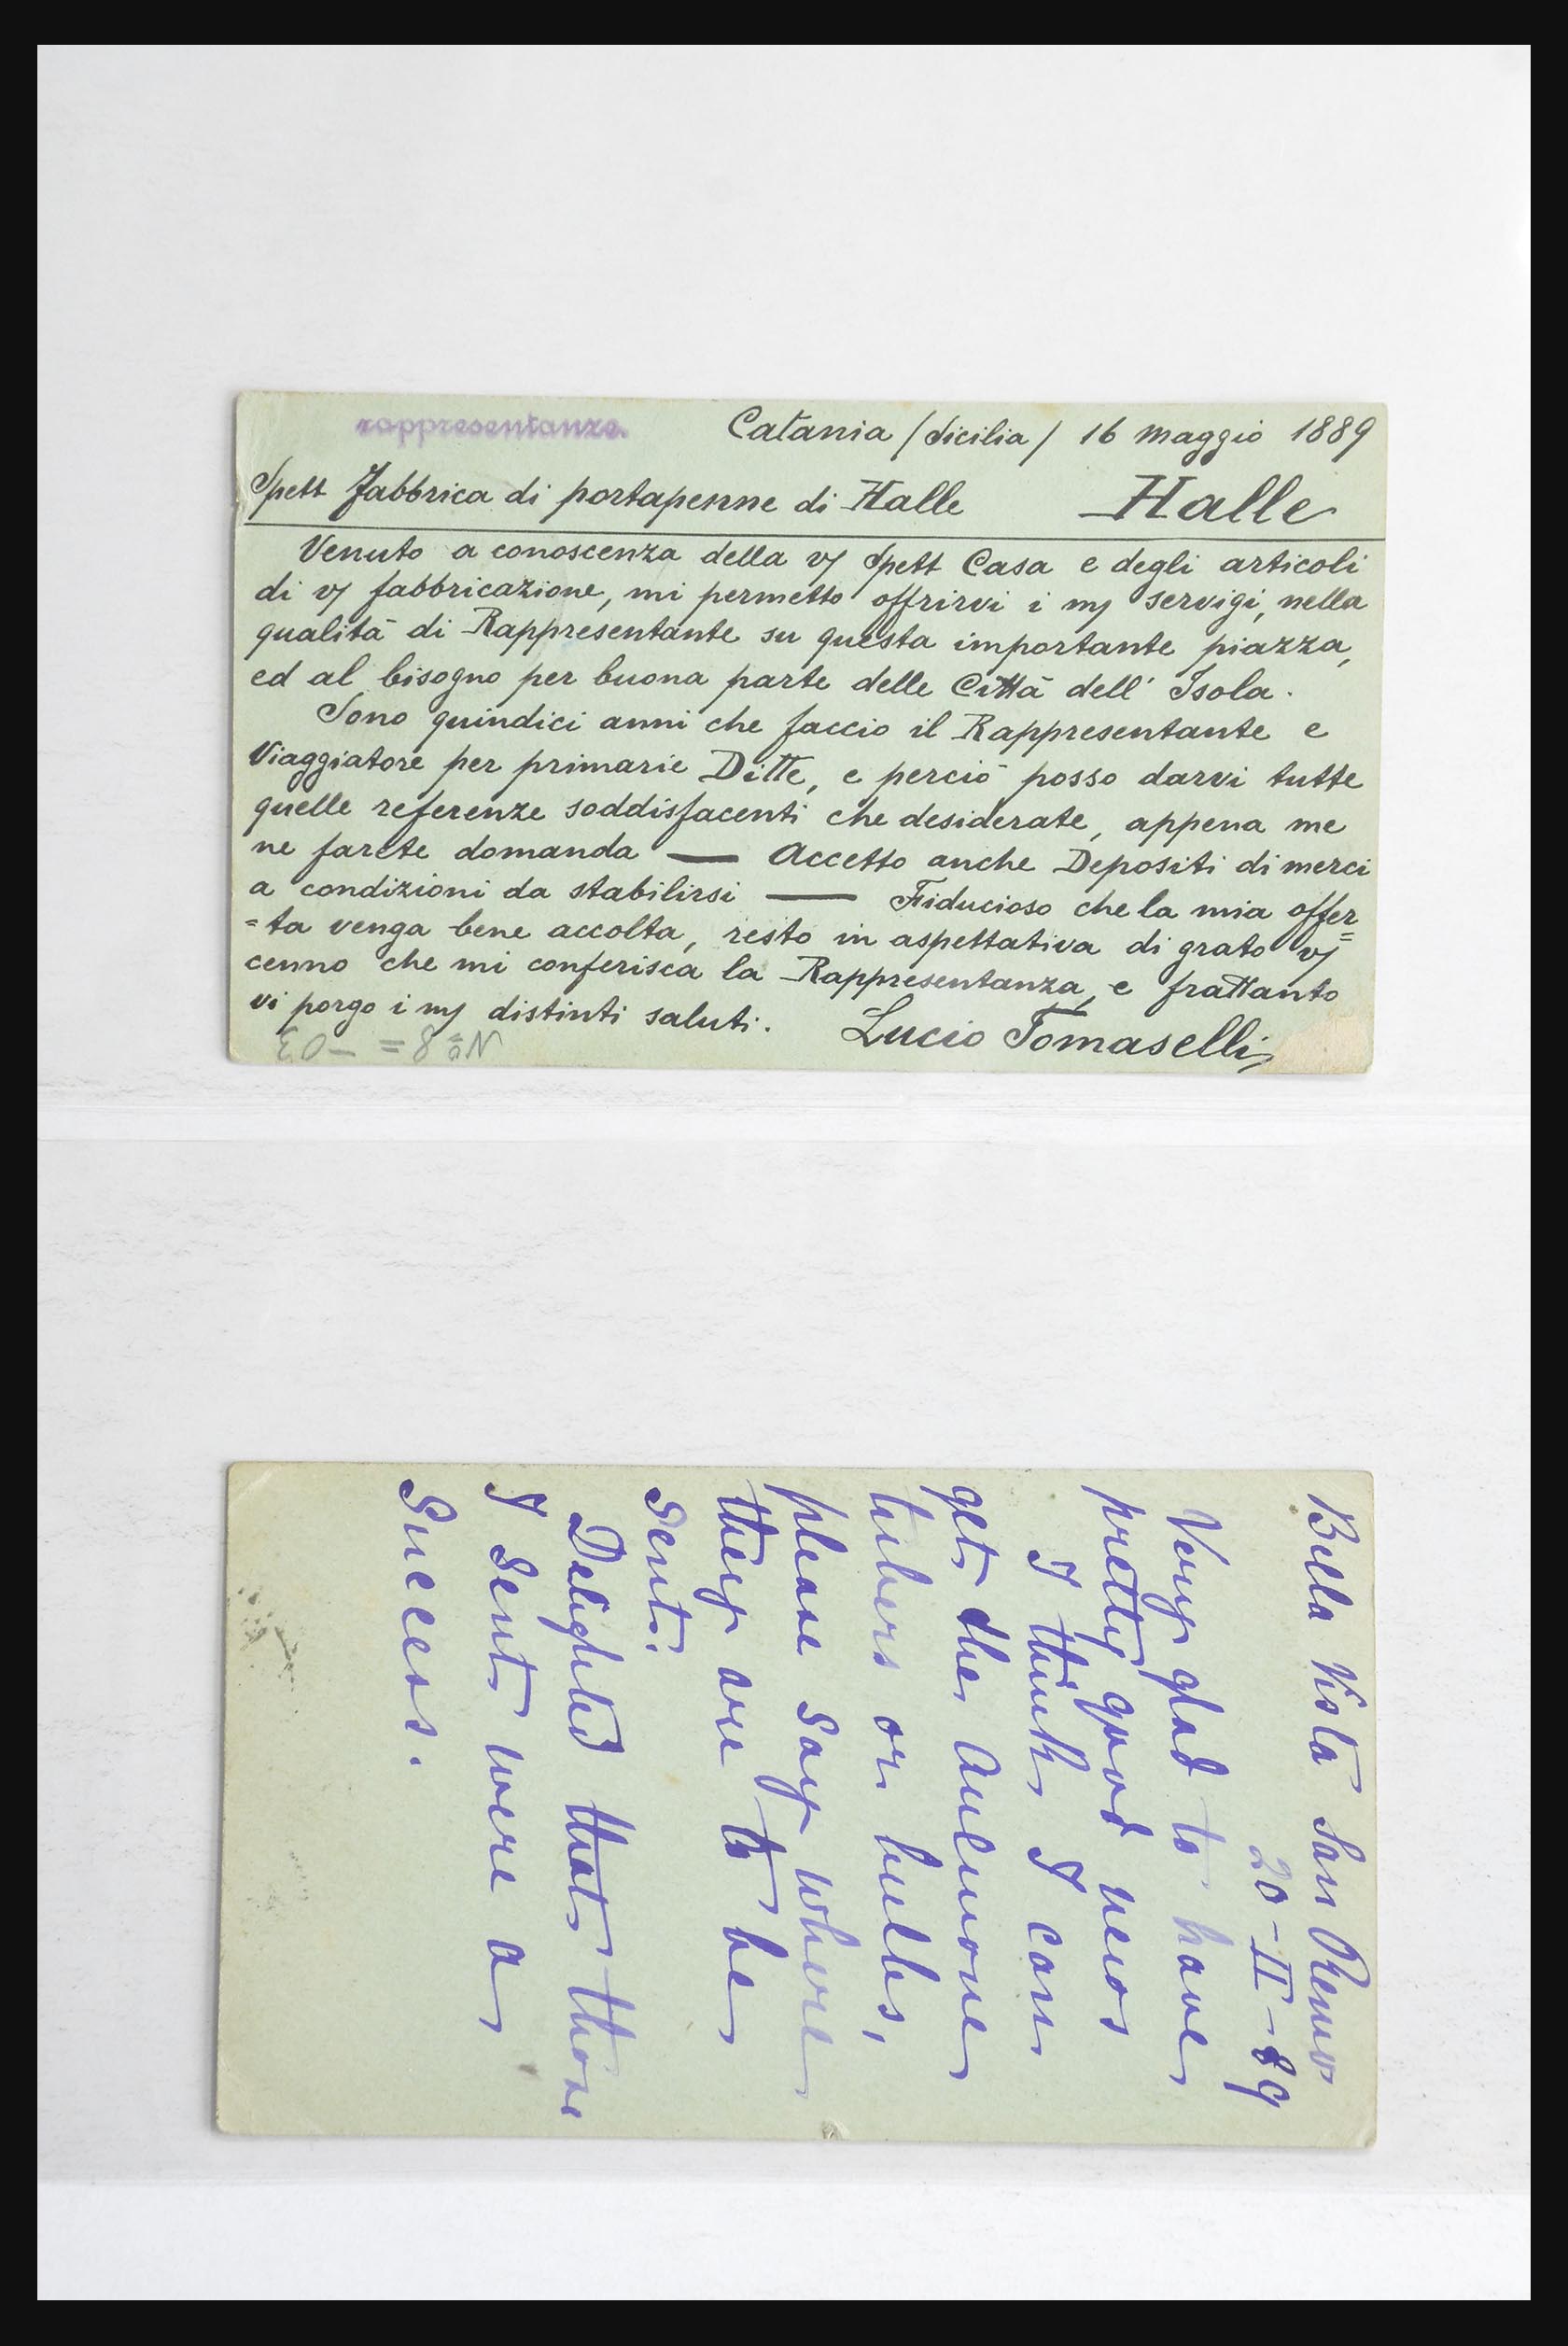 rappresentanze.
Catania / Sicilia / 16 Maggio 1889
Spett Fabbrica di portapenne di Halle Halle
Venuto a conoscenza della vs Spett Casa e degli articoli
di vs fabbricazione, mi permetto offrirvi i ms servigi, nella
qualità di Rappresentante su questa importante piazza,
ed al bisogno per buona parte delle Città dell' Isola.
Sono quindici anni che faccio il Rappresentante e
Viaggiatore per primarie Ditte, e perciò posso darvi tutte
quelle referenze soddisfacenti che desiderate, appena me
ne farete domanda — Accetto anche Depositi di merci
a condizioni da stabilirsi — Fiducioso che la mia offer=
=ta venga bene accolta, resto in aspettativa di grato vs
cenno che mi conferisca la Rappresentanza, e frattanto
vi porgo i ms distinti saluti. Lucio Tomaselli
Bella Vista San Remo
20-II-89
Very glad to have
pretty good news
I think I can
get the Anemone
tubers or bulbs,
please say where
they are to be
sent.
Delighted that those
I sent were a
Success.